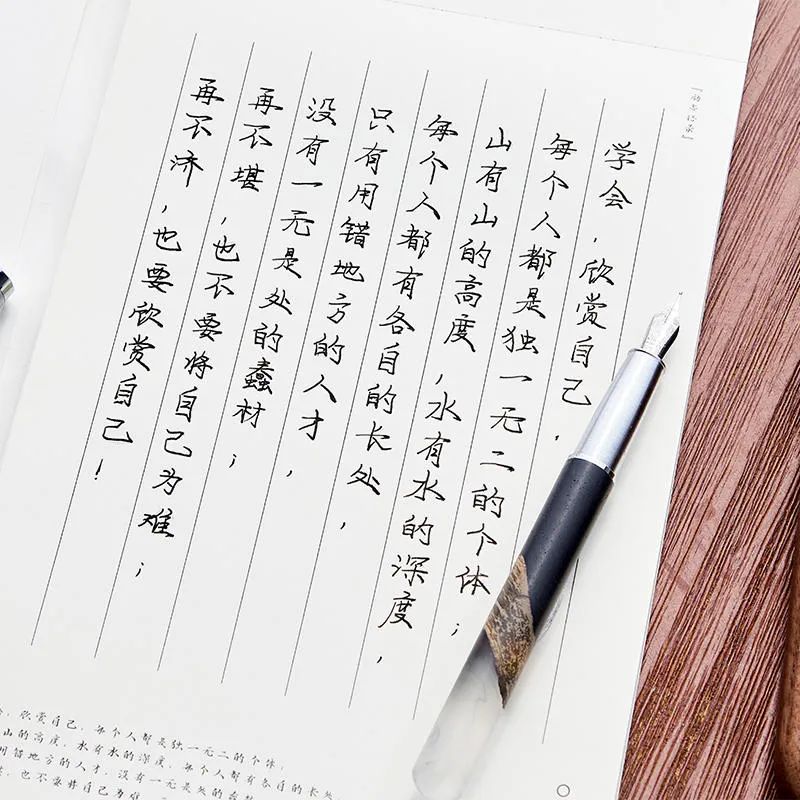 「励志语录」
学会，欣赏自己，
每个人都是独一无二的个体；
山有山的高度，水有水的深度，
每个人都有各自的长处，
只有用错地方的人才，
没有一无是处的蠢材；
再不堪，也不要将自己为难；
再不济，也要欣赏自己！
，欣赏自己，每个人都是独一无二的个体；
山的高度，水有水的深度，每个人都有各自的长处
用错地方的人才，没有一无是处的
，也不要将自己为难